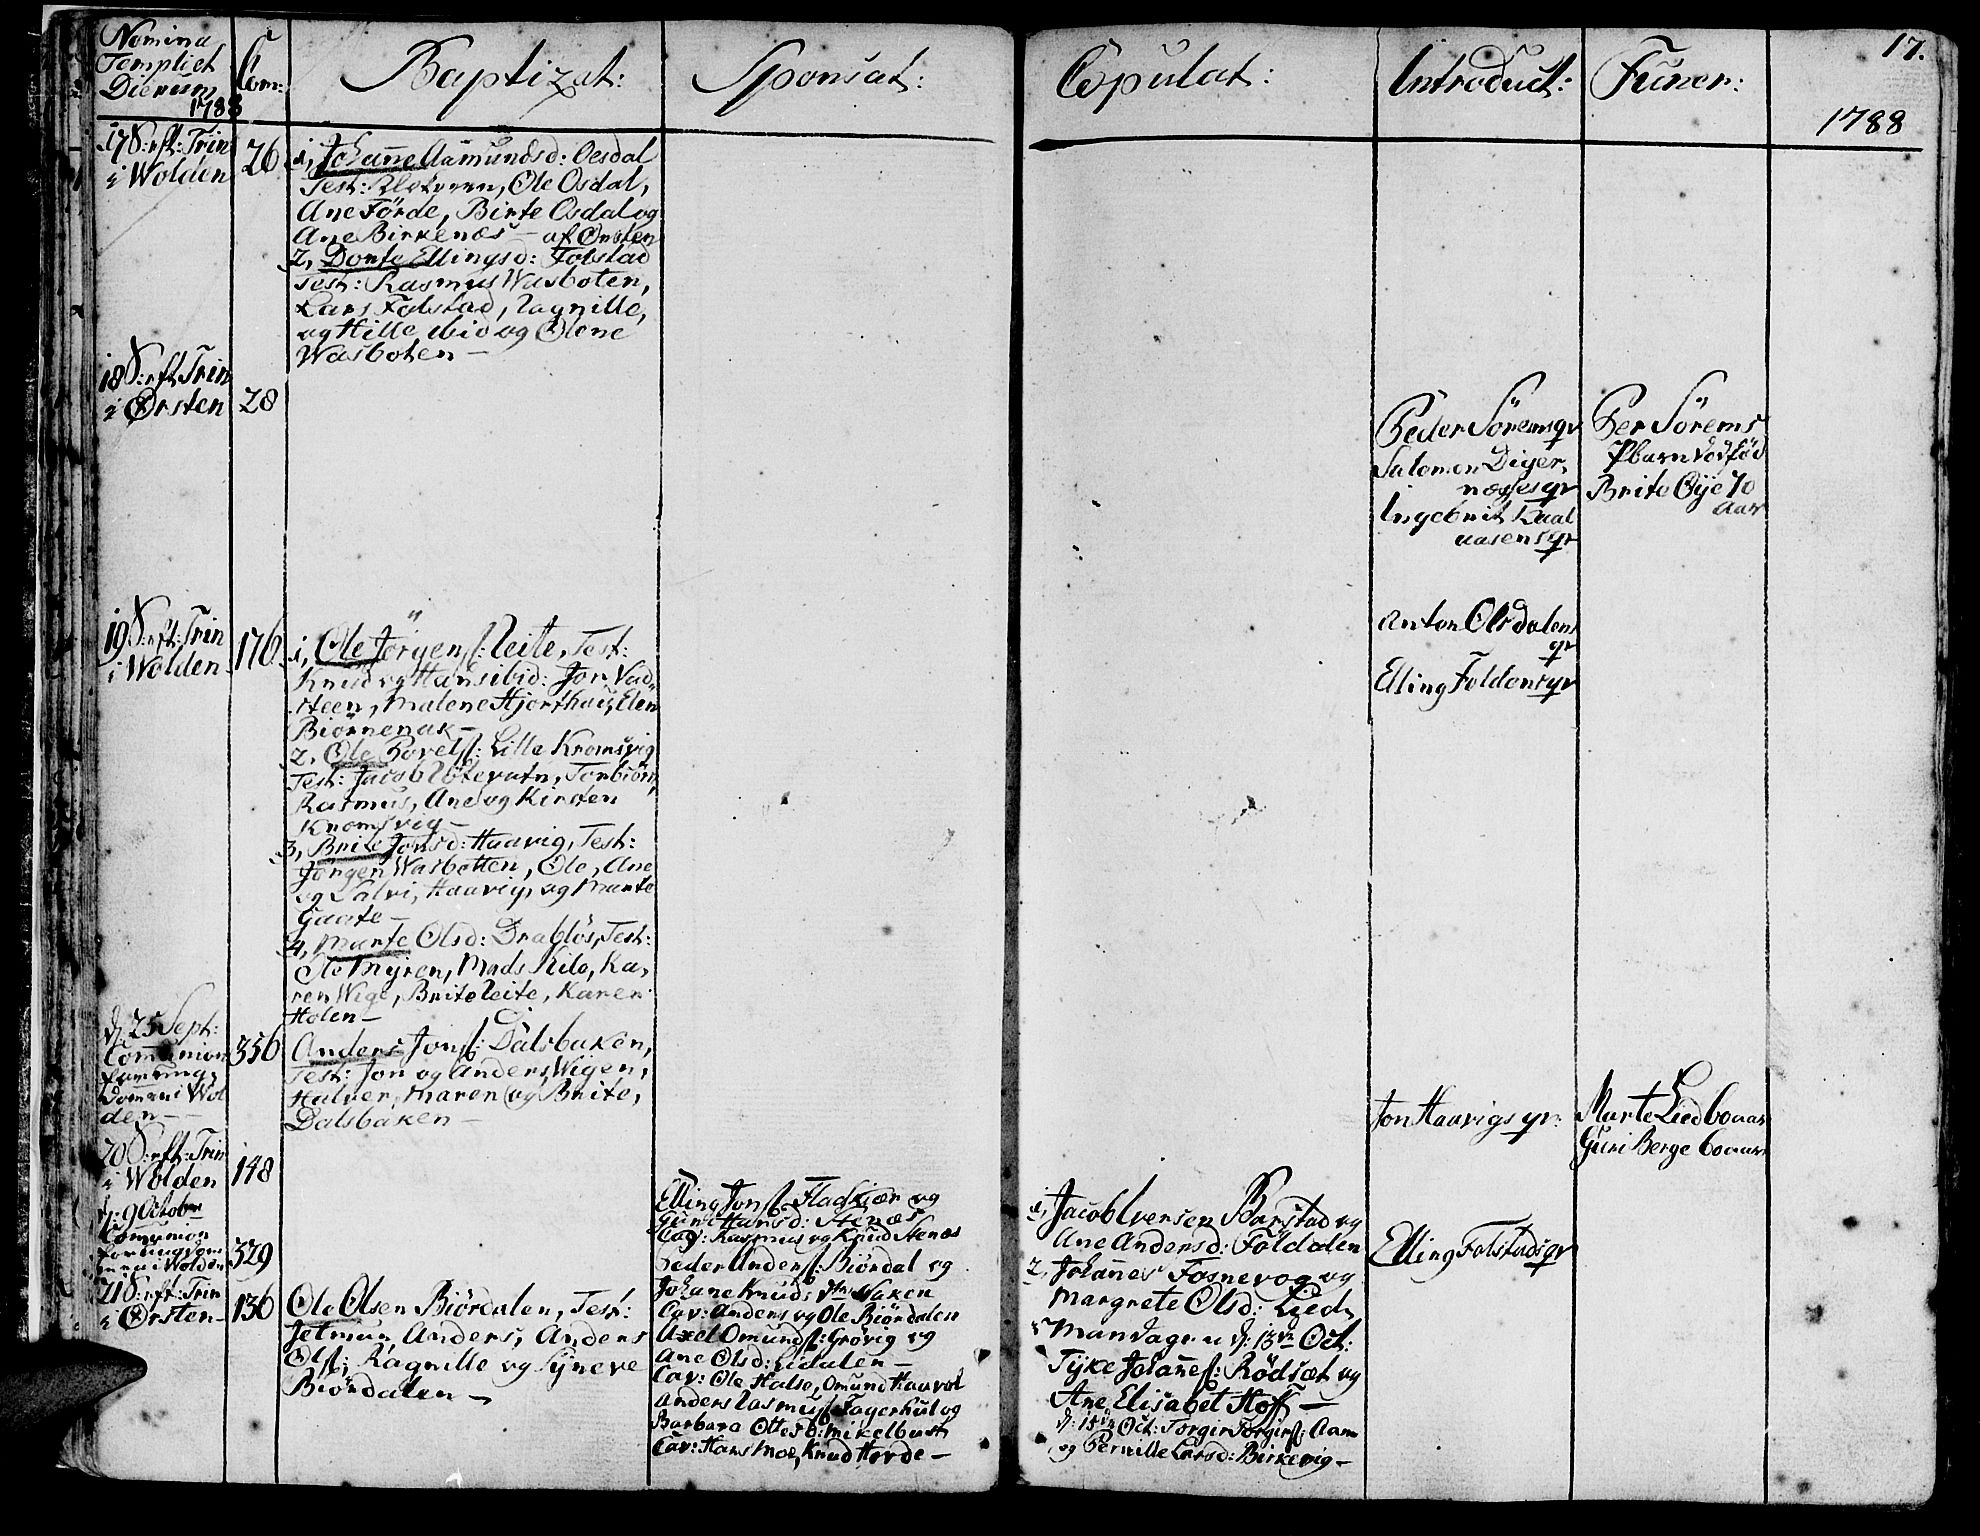 Nomina
Templi et
Dierum
1788
Com:
Baptizat:
Sponsat:
Copulat:
Introduct:
Funer:
17.
1788
17 S: eft: Trin
i Wolden
26
1, Johanne Aamundsd: Oesdal
Test: Ole Osdal,
Ane Förde, Birte Osdal og
Ane Birkenæs - af Ørsten
2, Dorte Ellingsd: Folstad
Test: Rasmus Wasboten,
Lars Folstad, Ragnille,
og Hille ibid og Olene
Wasboten -
18 S: eft Trin
i Ørsten
28
Peder Sörems qv
Salomon Diger,
næsses qv
Ingebrit Kaal
aasens qv
Per Sörems
Pbarn dödföd
Brite Øye 70
Aar
19 S: eft: Trin
i Wolden
176
1, Ole Jörgens: Leite, Test:
Knud og Hans ibid: Jon Vad,,
steen, Malene Hjorthaug, Elen
Biörnenak -
2, Ole Povels: Lille Kromsvig
Test: Jacob Löte Torbiörn,
Rasmus, Ane og Kirsten
Kromsvig -
3, Brite Jonsd: Haavig, Test:
Jörgen Wasbotten, Ole, Ane
og Salvi, Haavig, og Marte
Gaate -
4, Marte Olsd: Drablös, Test:
Ole Myren, Mads Kile, Ka,
ren Wige, Brite Leite, Karen
Holen -
Anton Olsdalens
qv
Elling Foldens qv
d: 25 Sept:
Communion
for ung,
dom i Wol
den -
356
Anders Jons: Dalsbaken,
Test: Jon og Anders Wigen,
Halver, Maren og Brite,
Dalsbaken -
Jon Haavigs qv:
Marte Lied 60 aar
Guri Berge 60 aar
20 S: eft: Trin
i Wolden
148
d: 9 October
Communion
for ungdom
men i Wolden
329
Elling Jons: Fladkjær og
Guri Hansd: Stenæs
Cav: Rasmus og Knud Stenæs
Peder Anders: Biördal og
Johane Knuds Dtr Waken
Cav: Anders og Ole Biördalen
Axel Omunds: Grövig og
Ane Olsd: Lidalen -
Cav: Ole Halse, Omund Haavol
Anders Rasmus: Fagerhol og
Barbara Ottesd: Mikelbust
Cav: Hans Moe, Knud Hovde -
1, Jacob Iversen Barstad og
Ane Andersd: Folddalen
2, Johannes Fosnevog og
Margrete Olsd: Lied,
Mandagen d: 13de Oct:
Tyke Johannes: Rödsæt og
Ane Elisabet Hoff -
d: 15de Oct: Torgir Torgirs: Aam
og Pernille Larsd: Birkevig -
Elling Folstads qv
21 S: eft: Trin
i Ørsten -
136
Ole Olsen Biördalen, Test:
Jetmun Anders, Anders
Ols:, Ragnille og Syneve
Biördalen -